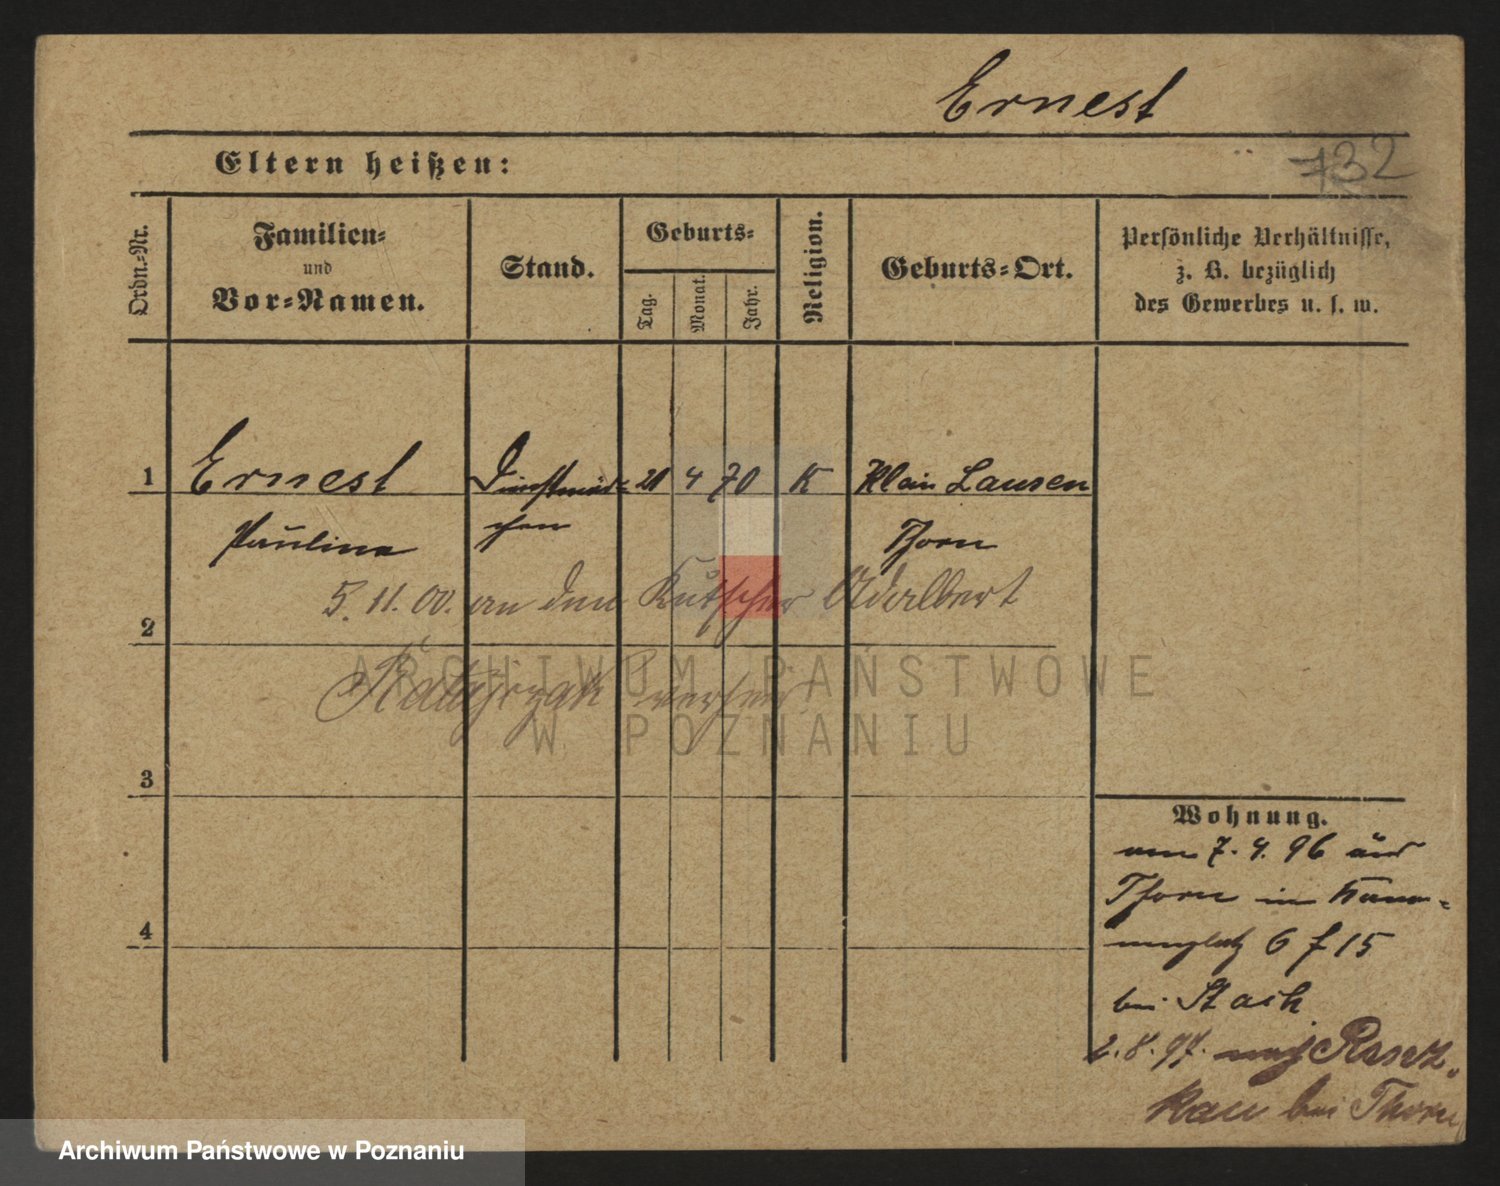 Ernest
Eltern heißen:
732
Ordn.-Nr.
Familien-
und
Vor-Namen.
Stand.
Geburts-
Tag.
Monat.
Jahr.
Religion.
Geburts-Ort.
Persönliche Verhältnisse,
z. B. bezüglich
des Gewerbes u. s. w.
1 Ernest Dienstmäd- 21 4 70 K Klein Lansen
Paulina chen Thorn
5. 11. 00. an den Kutscher Adalbert
2
Ratajczak verheir
ARCHIWUM PAŃSTWOWE
W POZNANIU
3
Wohnung.
am 7. 4. 96 aus
Thorn in
4
6 f 15
bei Stach
2. 8. 97. nach Rosez-
kau bei Thorn
Archiwum Państwowe w Poznaniu